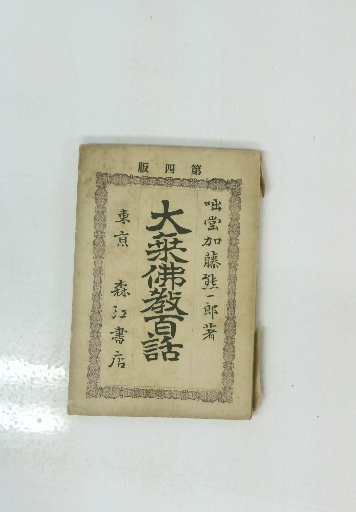 第四版
咄堂加藤熊一郎著
大乗佛教百話
東京 森江書店